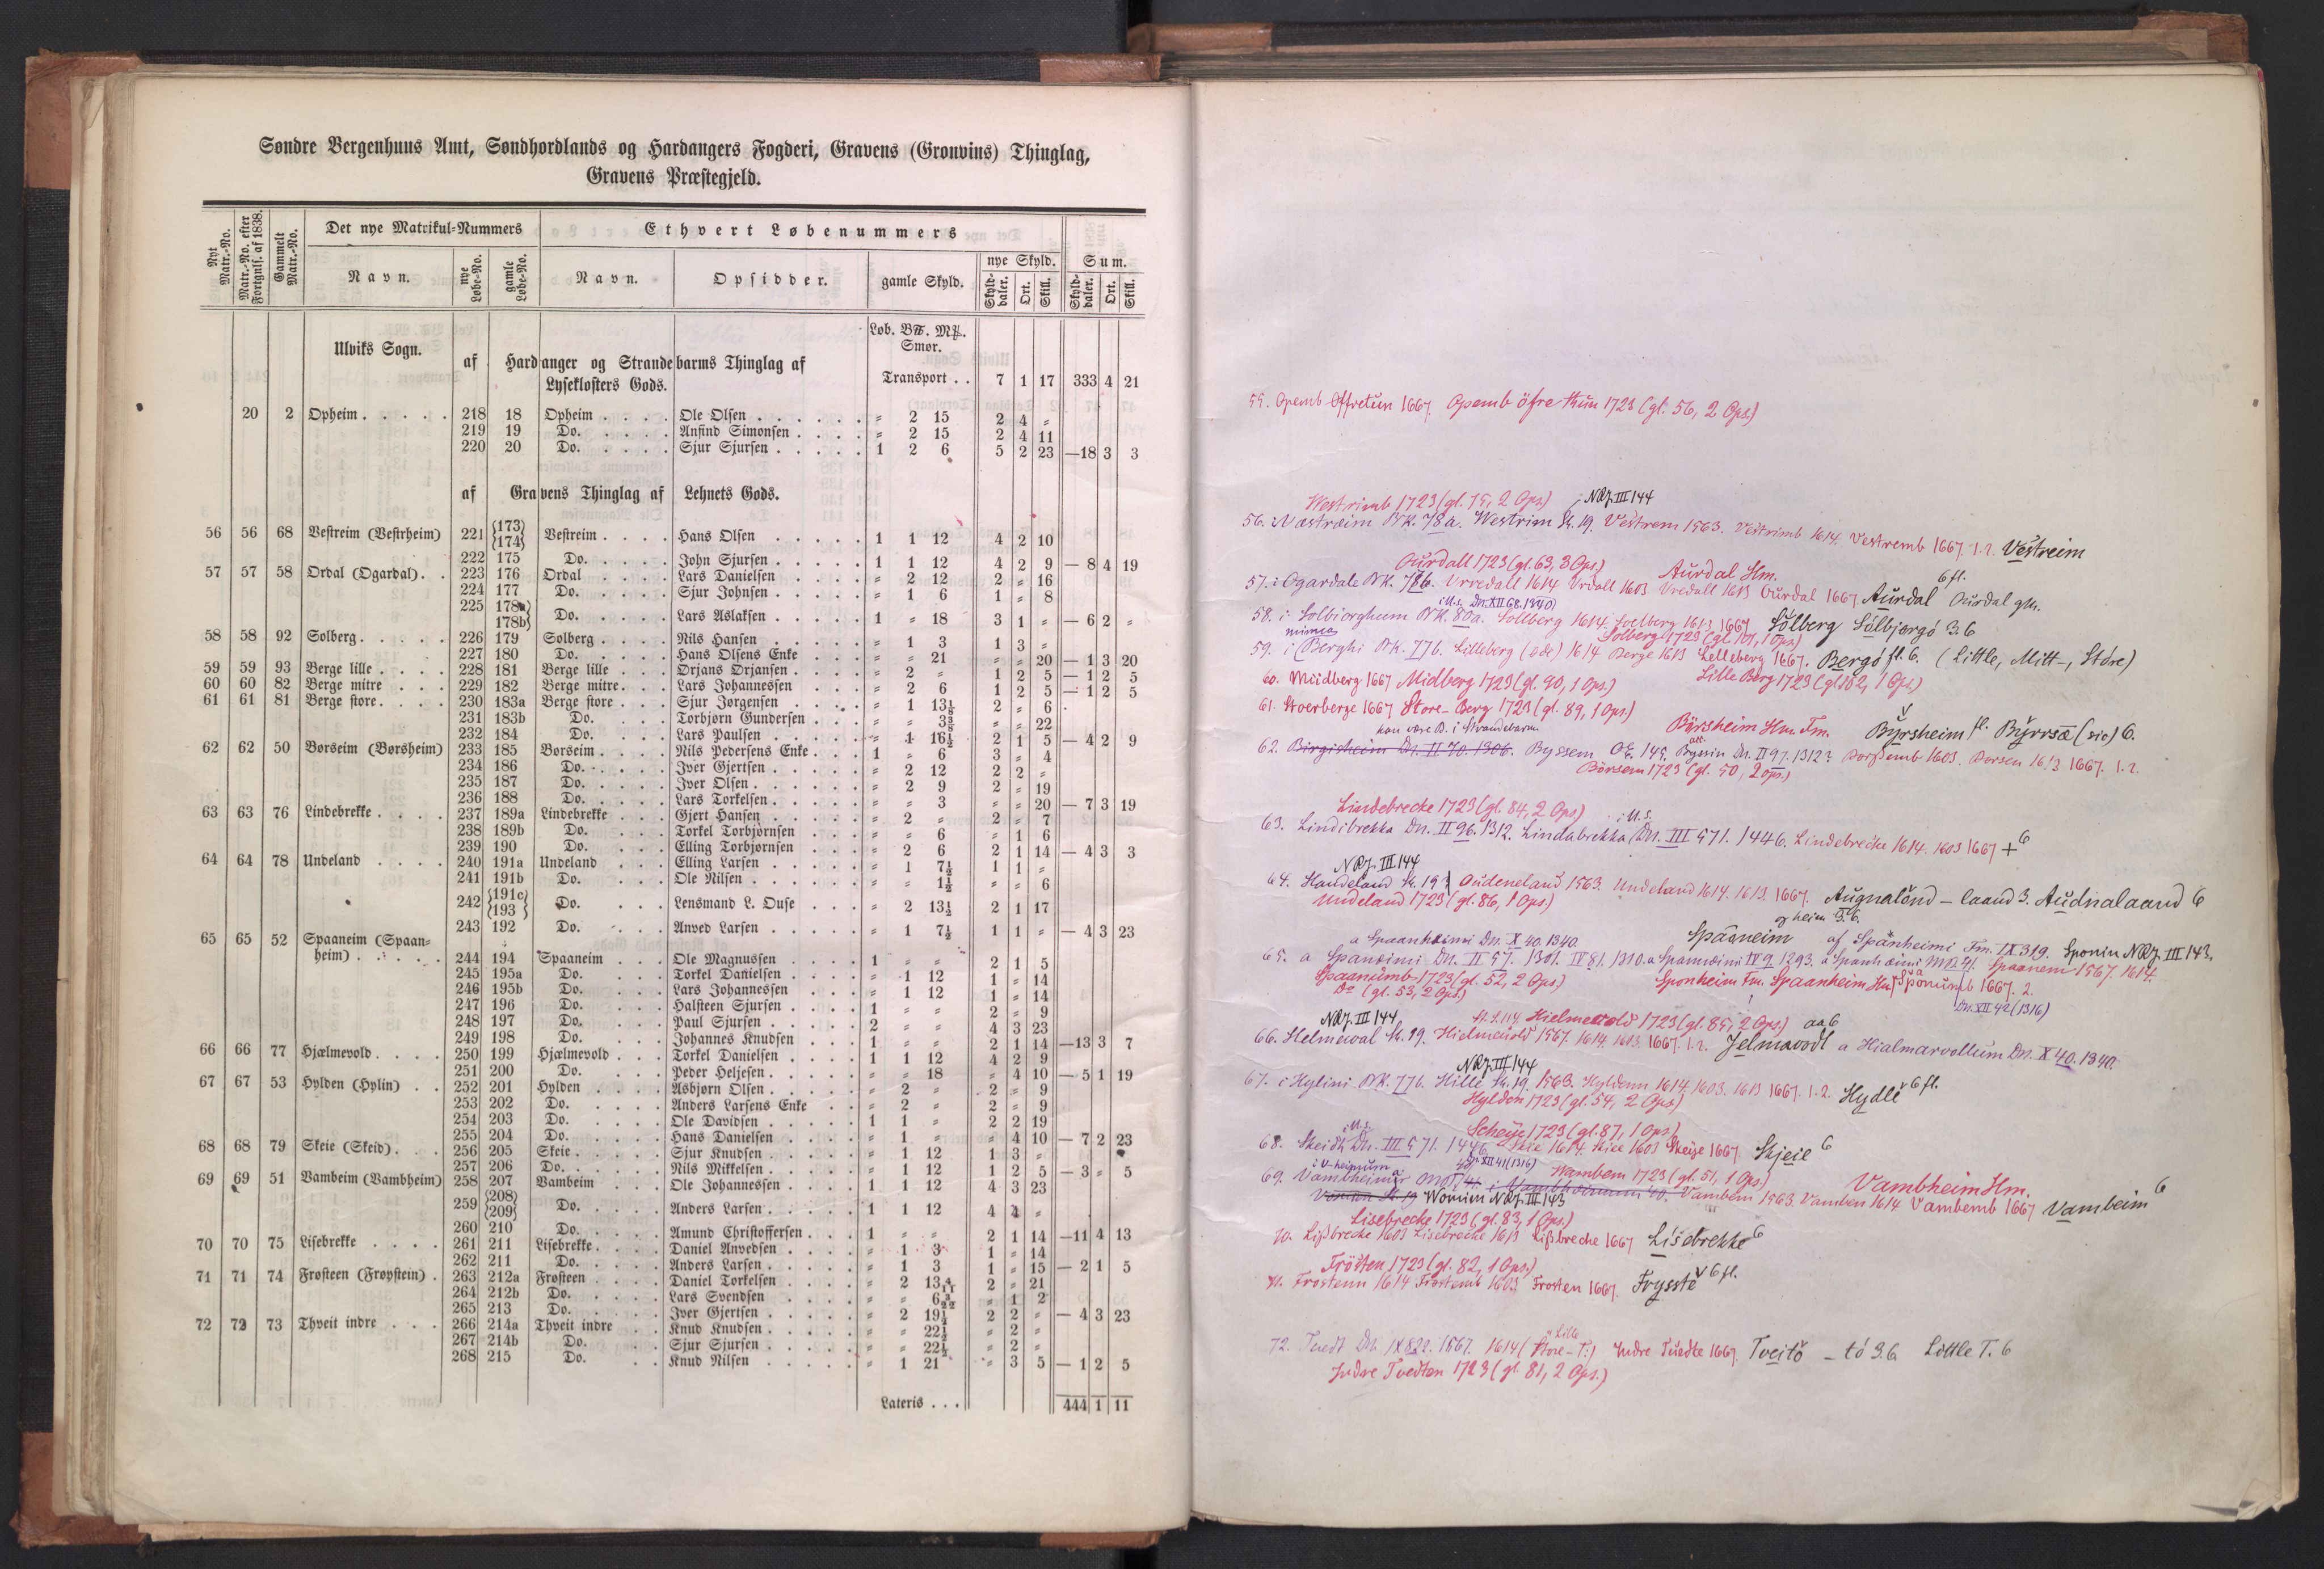 Søndre Bergenhuus Amt, Søndhordlands og Hardangers Fogderi, Gravens (Gronvins) Thinglag,
Gravens Præstegjeld.
Nyt Matr.-No. Matr.-No. efter Fortgnls. af 1838. Gammelt Matr.-No. Det nye Matrikul-Nummers Ethvert Løbenummers
Navn. nye Løbe-No. gamle Løbe-No. Navn. Opsidder. gamle Skyld. nye Skyld. Sum.
Skylddaler. Ort. Skill. Skylddaler. Ort. Skill.
Løb. B℔. M℔.
Ulviks Sogn. Smør.
af Hardanger og Strandebarms Thinglag af
Lyseklosters Gods. Transport . . 7 1 17 333 4 21
20 2 Opheim . . . . . 218 18 Opheim . . . . Ole Olsen . . . . . . = 2 15 2 4 =
219 19 Do. . . . . Anfind Simonsen . . . . = 2 15 2 4 11
220 20 Do. . . . . Sjur Sjursen . . . . . 1 2 6 5 2 23 —18 3 3
af Gravens Thinglag af Lehnets Gods.
56 56 68 Vestreim (Vestrheim) 221 {173} {174} Vestreim . . . . Hans Olsen . . . . . 1 1 12 4 2 10
222 175 Do. . . . . John Sjursen . . . . . 1 1 12 4 2 9 — 8 4 19
57 57 58 Ordal (Ogardal) . . 223 176 Ordal . . . . Lars Danielsen . . . . = 2 12 2 = 16
224 177 Do. . . . . Sjur Johnsen . . . . . = 1 6 1 = 8
225 178a} 178b} Do. . . . . Lars Aslaksen . . . . . 1 = 18 3 1 = — 6 2 =
58 58 92 Solberg . . . . . 226 179 Solberg . . . . Nils Hansen . . . . = 1 3 1 3 =
227 180 Do. . . . . Hans Olsens Enke . . . = = 21 = = 20 — 1 3 20
59 59 93 Berge lille . . . . 228 181 Berge lille . . . Ørjans Ørjansen . . . . = 2 = 1 2 5 — 1 2 5
60 60 82 Berge mitre . . . 229 182 Berge mitre . . . Lars Johannessen . . . = 2 6 1 2 5 — 1 2 5
61 61 81 Berge store . . . . 230 183a Berge store . . . Sjur Jørgensen . . . . = 1 13⅛ 2 = 6
231 183b Do. . . . Torbjørn Gundersen . . . = = 3⅜ = = 22
232 184 Do. . . . Lars Paulsen . . . . . = 1 16½ 2 1 5 — 4 2 9
62 62 50 Børseim (Børsheim) 233 185 Børseim . . . . Nils Pedersens Enke . . . 1 = 6 3 = 4
234 186 Do. . . . . Iver Gjertsen . . . . . = 2 12 2 2 =
235 187 Do. . . . . Iver Olsen . . . . . . = 2 9 2 = 19
236 188 Do. . . . . Lars Torkelsen . . . . . = = 3 = = 20 — 7 3 19
63 63 76 Lindebrekke . . . . 237 189a Lindebrekke . . . Gjert Hansen . . . . . = 2 = 2 = 7
238 189b Do. . . . Torkel Torbjørnsen . . . = = 6 = 1 6
239 190 Do. . . . Elling Torbjørnsen . . . = 2 6 2 1 14 — 4 3 3
64 64 78 Undeland . . . . 240 191a Undeland . . . Elling Larsen . . . . . = 1 7½ 1 1 =
241 191b Do. . . . Ole Nilsen . . . . . . = = 1½ = = 6
242 {191c} {193} Do. . . . Lensmand L. Ouse . . . = 2 13½ 2 1 17
243 192 Do. . . . Anved Larsen . . . . . = 1 7½ 1 1 = — 4 3 23
65 65 52 Spaaneim (Spaan=
heim) . . . . . 244 194 Spaaneim . . . Ole Magnussen . . . . 1 = = 2 1 5
245 195a Do. . . . Torkel Danielsen . . . . = 1 12 1 = 14
246 195b Do. . . . Lars Johannessen . . . = 1 12 1 = 14
247 196 Do. . . . Halsteen Sjursen . . . . 1 = = 2 = 9
248 197 Do. . . . Paul Sjursen . . . . . 2 = = 4 3 23
249 198 Do. . . . Johannes Knudsen . . . 1 = = 2 1 14 —13 3 7
66 66 77 Hjælmevold . . . . 250 199 Hjælmevold . . . Torkel Danielsen . . . . 1 1 12 4 2 9
251 200 Do. . . . Peder Heljesen . . . . . = = 18 = 4 10 — 5 1 19
67 67 53 Hylden (Hylin) . . 252 201 Hylden . . . . Asbjørn Olsen . . . . . = 2 = 2 = 9
253 202 Do. . . . . Anders Larsens Enke . . = 2 = 2 = 9
254 203 Do. . . . . Ole Davidsen . . . . . 1 1 = 2 2 19
255 204 Do. . . . . Hans Danielsen . . . . = 1 = = 4 10 — 7 2 23
68 68 79 Skeie (Skeid) . . . 256 205 Skeie . . . . . Sjur Knudsen . . . . . = 1 12 1 3 =
257 206 Do. . . . . . Nils Mikkelsen . . . . . = 1 12 1 2 5 — 3 = 5
69 69 51 Vambeim (Vambheim) 258 207 Vambeim . . . Ole Johannessen . . . . 1 1 12 4 3 23
259 {208} {209} Do. . . . Anders Larsen . . . . . 1 1 12 4 4 =
260 210 Do. . . . Amund Christoffersen . . . 1 = = 2 1 14 —11 4 13
70 70 75 Lisebrekke . . . . 261 211 Lisebrekke . . . . Daniel Anvedsen . . . . = 1 3 1 = 14
262 211 Do. . . . . Anders Larsen . . . . . = 1 3 1 = 15 — 2 1 5
71 71 74 Frøsteen (Frøystein) . 263 212a Frøsteen . . . . Daniel Torkelsen . . . . = 2 13 4/11 2 = 21
264 212b Do. . . . . Lars Svendsen . . . . = = 6 3/22 = 1 2
265 213 Do. . . . . Iver Gjertsen . . . . . = 2 19¼ 2 2 = — 4 3 23
72 72 73 Thveit indre . . . 266 214a Thveit indre . . Knud Knudsen . . . . . = = 22½ = 2 =
267 214b Do. . . Sjur Sjursen . . . . . = = 22½ = 2 =
268 215 Do. . . Knud Nilsen . . . . . = 1 21 = 3 5 — 1 2 5
Lateris . . . 444 1 11
55. Opemb Offretun 1667. Opemb öfre thun 1723 (gl. 56, 2 Ops.)
Westrimb 1723 (gl. 75, 2 Ops.) NRJ. III 144
56. i Vastræim BK. 78a. Westrim St. 19. Vestrem 1563. Vestrimb 1614. Vestremb 1667. 1.2. Vestreim
Ourdall 1723 (gl. 63, 3 Ops.) Aurdal Hm. 6 fl.
57. i Ogardale BK. 78b. Vrredall 1614 Vrdall 1603. Vredall 1613 Ourdal 1667. Aurdal Ourdal gm.
i U.s. Dn. XII 68. (1340)
58. i Solbiorghum BK. 80a. Sollberg 1614. Soelberg 1613 1667 Sölberg Sålbjørgó 3.6
minnea Solberg 1723 (gl. 101, 1 Ops)
59. i Berghi BK. 77b. Lilleberg (øde) 1614 Berge 1613 Lelleberg 1667. Bergó fl. 6. (Little, Mitt-, Störe)
60. Miidberg 1667 Midberg 1723 (gl. 90, 1 Ops.) Lille Berg 1723 (gl. 102, 1 Ops.)
61. Stoerberge 1667 Store-Berg 1723 (gl. 89, 1 Ops.) Byrsheim Hm. Fm. Byrsheim fl. Byrrsæ (sic) 6.
kan være B. i Strandebarm
62. Birgisheim Dn. II 70. 1306. Byssem OE. 145. Byssin Dn. II 97. 1312? Borssemb 1603. Borsen 1613 1667. 1.2.
Börsem 1723 (gl. 50, 2 ops.)
Lindebrecke 1723 (gl. 84, 2 Ops.) i U.s.
63. Lindibrekka Dn. II 96. 1312. Lindabrekka Dn. III 571. 1446. Lindebrecke 1614. 1603 1667 + 6
NRJ. III 144
64. Haudeland St. 19. Oudeneland 1563. Undeland 1614. 1613. 1667. Augnalönd – laand 3. Audnalaand 6
Undeland 1723 (gl. 86, 1 Ops.)
og heim 3.6.
a Spaanheimi Dn. X 40. 1340. Spåaneim af Spånheimi Fm. IX 319. Sponin NRJ. III 143.
65. a Spanæimi Dn. II 57. 1301. IV 81. 1310. a Spanæimi IV 9. 1293. a Spanhæimi Mb. 41. Spaanem 1567. 1614.
Spaanumb 1723 (gl. 52, 2 Ops) Sponheim Fm. Spaanheim Hm. Sponumb 1667. 2.
Do (gl. 53, 2 Ops) Dn. XII 42 (1316)
NRJ. III 144 Hielmevold 1723 (gl. 85, 2 Ops.) aa 6
66. Helmewal St. 19. Hielmeuold 1567. 1614. 1603. 1667. 1.2. Jelmavodl a Hialmarvollum Dn. X 40. 1340.
NRJ. III 144
67. i Hylini BK. 77b. Hille St. 19. 1563. Hyldenn 1614 1603. 1613 1667. 1.2. Hydlé 6 fl.
Hylden 1723 (gl. 54, 2 Ops.)
i U.s. Scheije 1723 (gl. 87, 1 Ops.)
68. Skeidh Dn. III 571. 1446. Skie 1614. Skiee 1603 Skeije 1667. Skjeie 6
i V-heimum Dn. XII 41 (1316) Wambem 1723 (gl. 51, 1 Ops.) Vambheim Hm.
69. Vambheimar Vambem 1563. Vamben 1614 Vambemb 1667 Vambeim 6
Womim NRJ. III 143
Lisebrecke 1723 (gl. 83, 1 Ops.)
70. Lissbrecke 1603 Lisebrecke 1613 Lissbreche 1667 Lisebrekke 6
Frösten 1723 (gl. 82, 1 Ops.)
71. Frostenn 1614 Frostemb 1603 Frosten 1667. Frysste 6 fl.
72. Tuedt Dn. IX 822. 1567. 1614 (Store-T.) Lille Indre Tuedte 1667. Tveitó – tó 3.6 Little T. 6
Indre Tvedten 1723 (gl. 81, 2 Ops.)